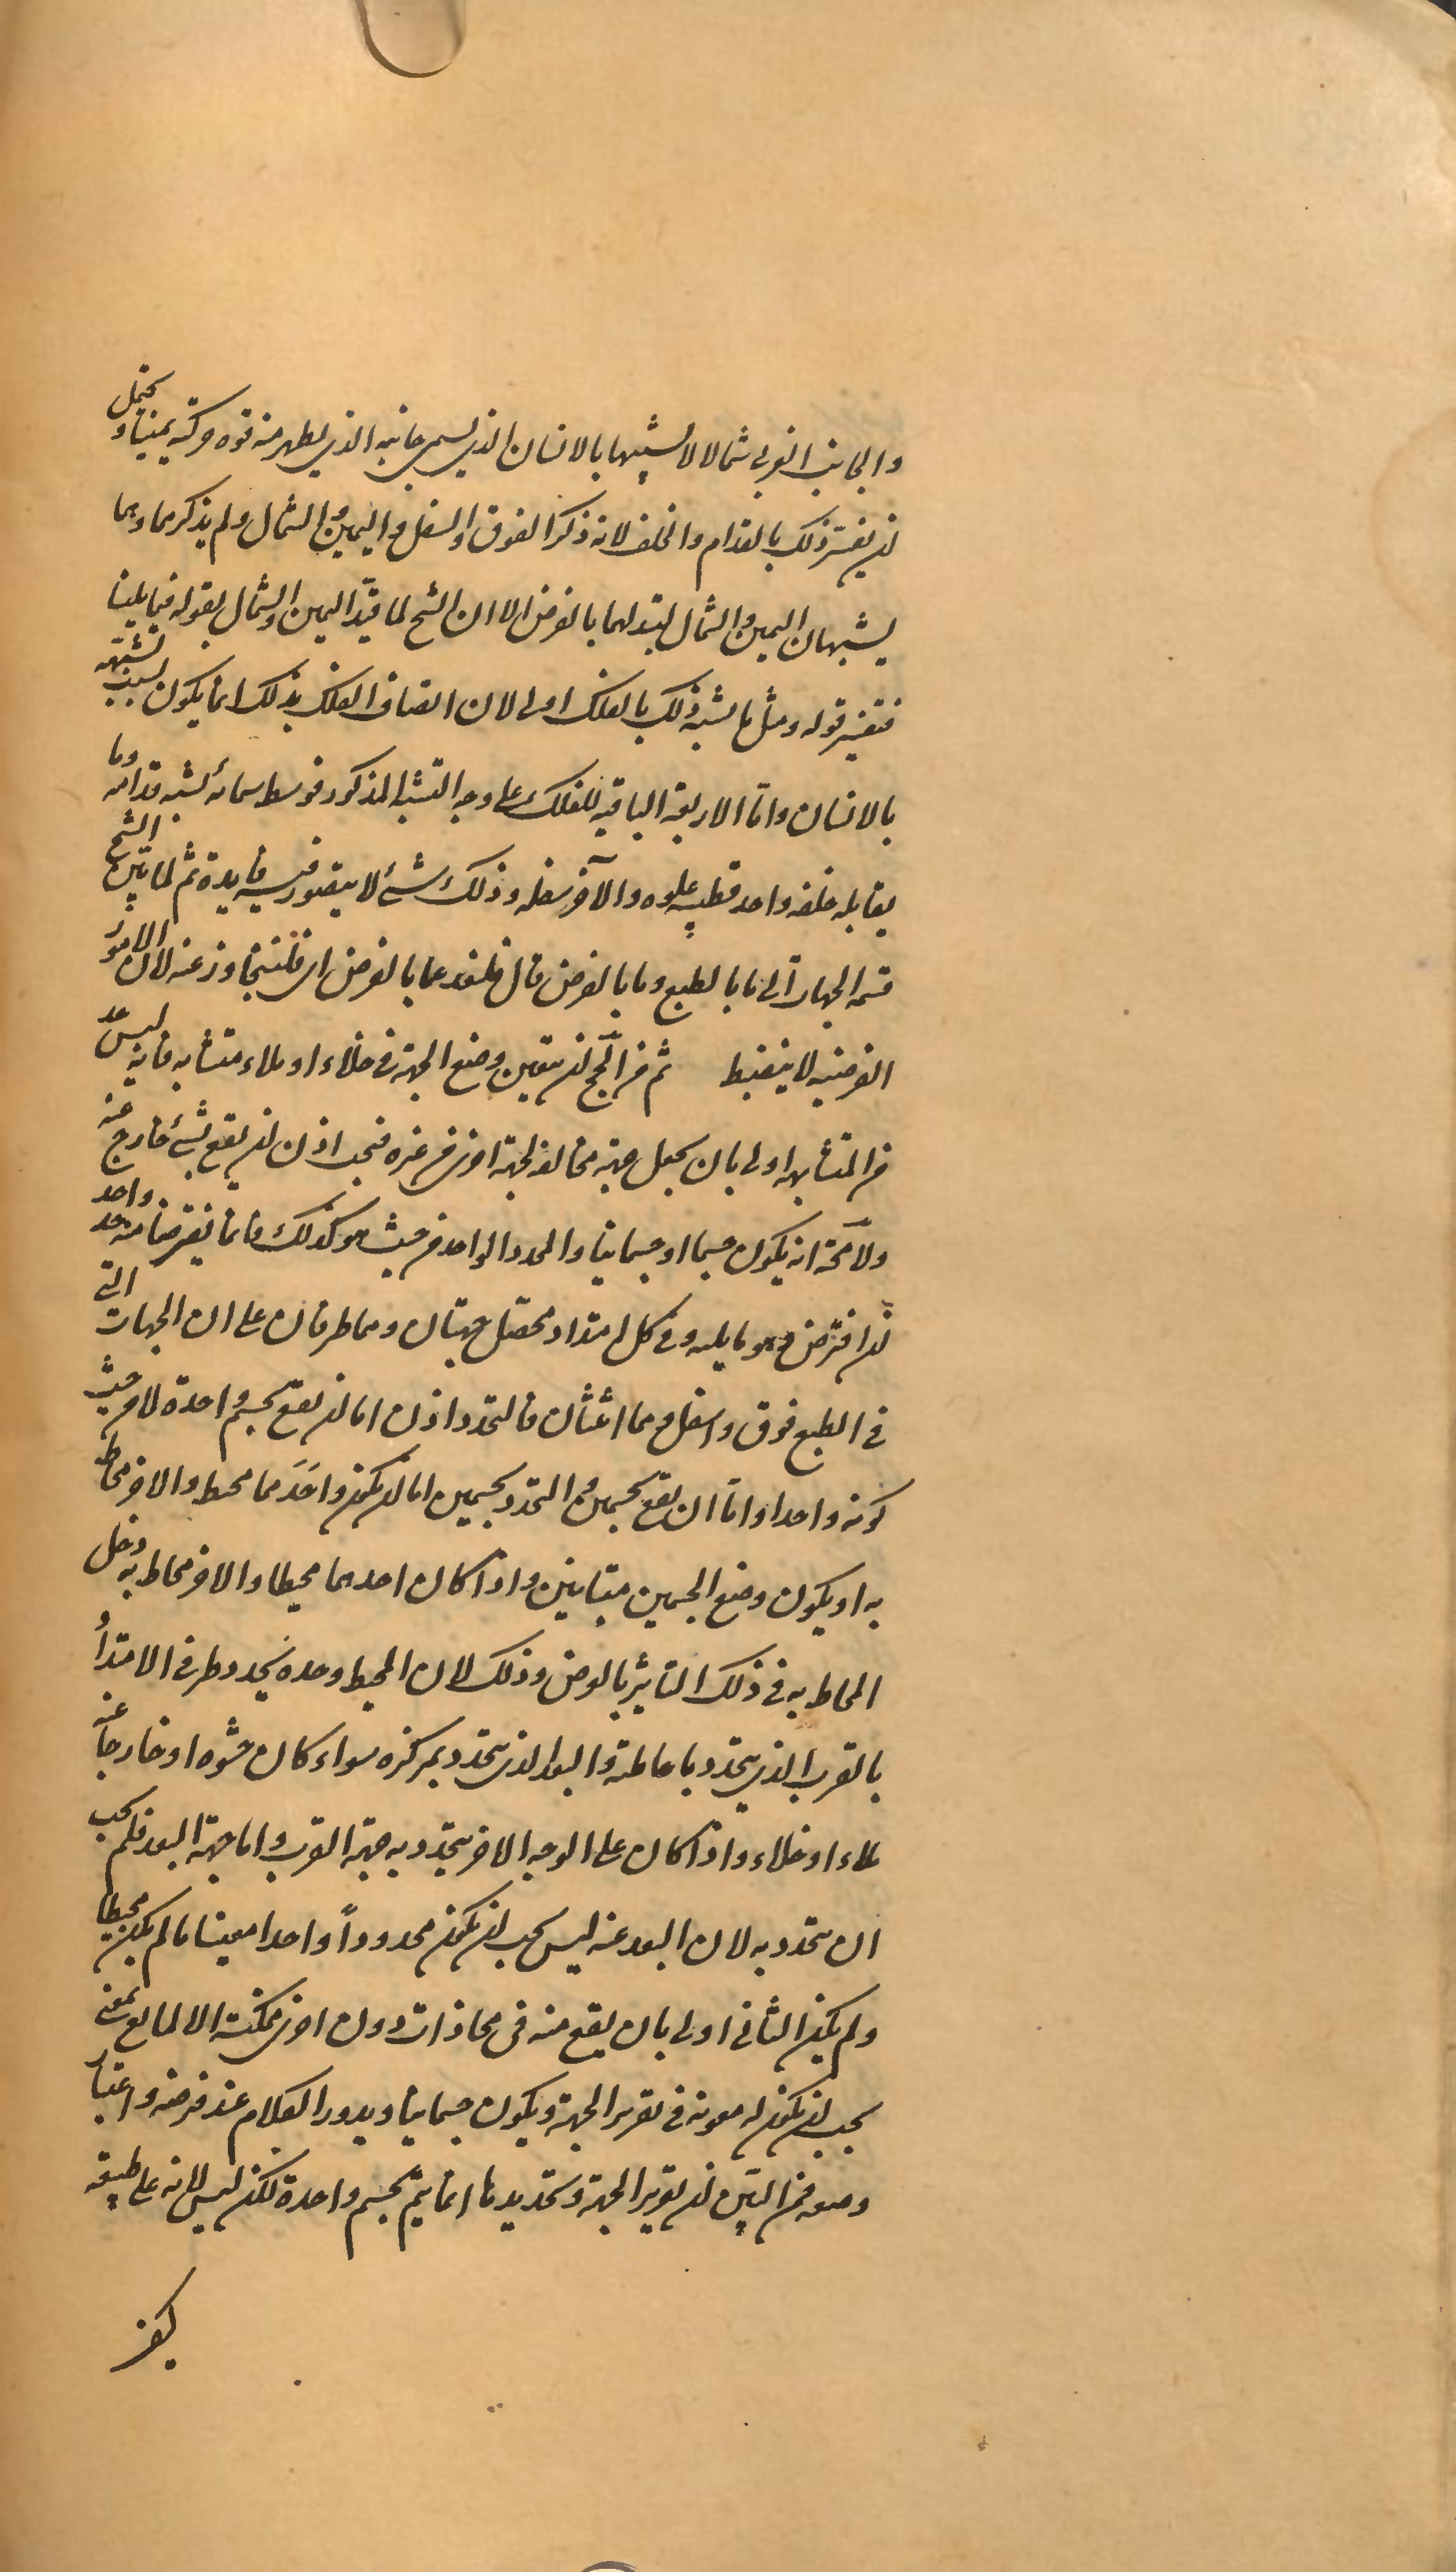 والجانب الغربي شمالا لا لشبهها بالانسان الذي يسمى جانبه الذي يظهر منه قوة حركته يمينا ويحتمل
ان يفسر ذلك بالقدام والخلف لانه ذكر الفوق والسفل واليمين والشمال ولم يذكرهما وهما
يشبهان اليمين والشمال لتبدلهما بالفرض الا ان الشيخ لما قيد اليمين والشمال بقوله فيما يلينا
فتفسير قوله ومثل ما يشبه ذلك بالفلك اولى لان اتصاف الفلك بذلك انما يكون بسبب تشبهه
بالانسان واما الاربعة الباقية للفلك على وجه التشبه المذكور فوسط سمائه يشبه قدامه وما
يقابله خلفه واحد قطبيه علوه والآخر سفله وذلك شئ لا يتصور فيه فايدة ثم لما بين الشيخ
قسمة الجهات الى ما بالطبع وما بالفرض قال فلنعد عما بالفرض اى فلنتجاوز عنه لان الامور
الفرضية لا ينضبط ثم من المح ان يتعين وضع الجهة في خلاء او ملاء متشابه فانه ليس حد
من المتشابه اولى بان يجعل جهة مخالفة لجهة اخرى من غيره فيجب اذن ان يقع بشئ خارج عنه
ولا محة انه يكون جسما او جسمانيا والمحدد الواحد من حيث هو كذلك فانما يفترض منه حد واحد
ان افترض وهو ما يليه وفي كل امتداد محصل جهتان وهما طرفان على ان الجهات التي
في الطبع فوق واسفل وهما اثنتان فالتحدد اذن اما ان يقع بجسم واحد لا من حيث
كونه واحدا واما ان يقع بجسمين والتحدد بجسمين اما ان يكون احدهما محيط والاخر محاط
به او يكون وضع الجسمين متباينين واذا كان احدهما محيطا والاخر محاط به دخل
المحاط به في ذلك التاثير بالعرض وذلك لان المحيط وحده يحدد طرفي الامتداد
بالقرب الذي يتحدد باحاطته والبعد الذي يتحدد بمركزه سواء كان حشوه او خارجا عنه
ملاء او خلاء واذا كان على الوجه الاخر يتحدد به جهة القرب واما جهة البعد فلم يجب
ان يتحدد به لان البعد عنه ليس يجب ان يكون محدودا واحدا معينا ما لم يكن محيطا
ولم يكن الثاني اولى بان يقع منه في محاذات دون اخرى ممكنة الا لمانع معنى
يجب ان يكون له معونة في تقرير الجهة ويكون جسمانيا ويدور الكلام عند فرضه واعتبار
وضعه فمن البين ان تقرير الجهة وتحديدها انما يتم بجسم واحد لكن ليس لانه على طبيعة
كيف